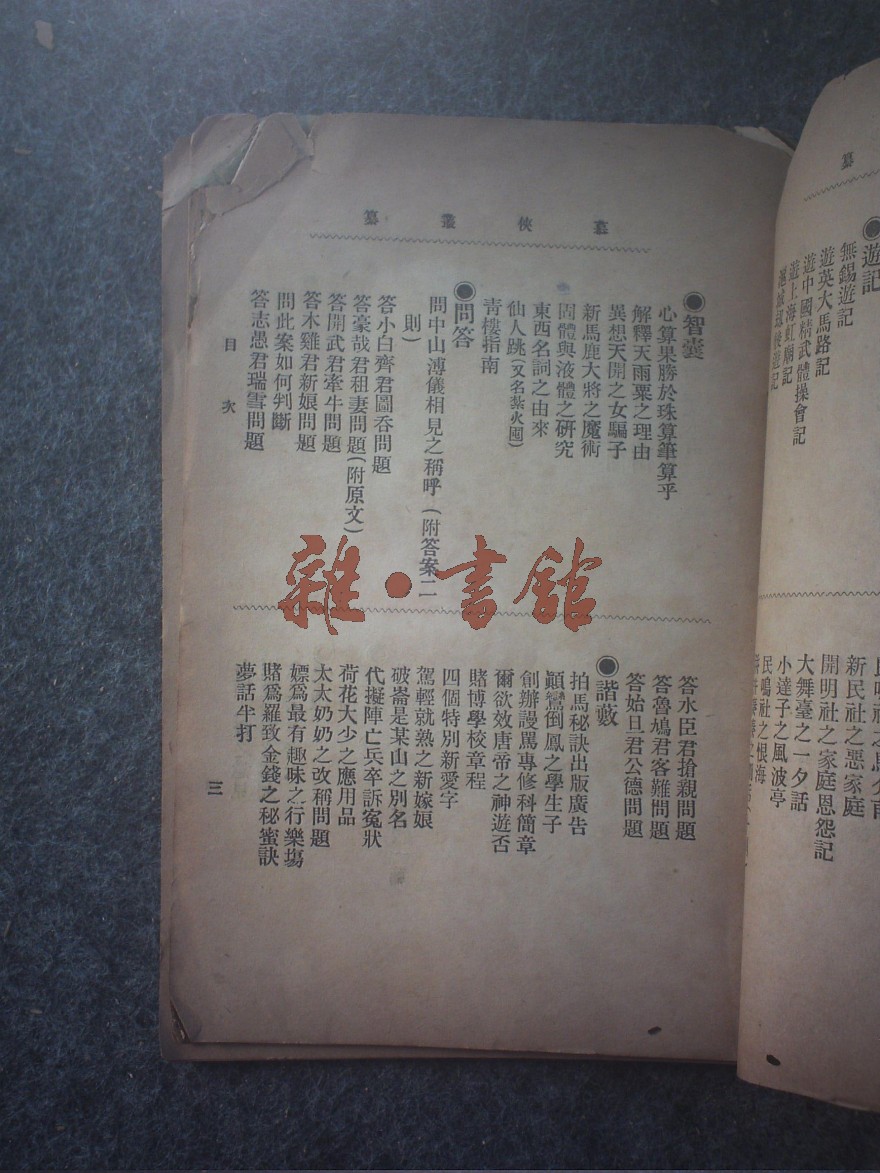 纂
◉遊記
無錫遊記
遊英大馬路記
遊中國精武體操會記
遊上海虹廟記
新民社之惡家庭
開明社之家庭恩怨記
大舞臺之一夕話
小達子之風波亭
民鳴社之恨海
纂叢俠
◉智囊
心算果勝於珠算筆算乎
解釋天雨粟之理由
異想天開之女騙子
新馬鹿大將之魔術
固體與液體之研究
東西名詞之由來
仙人跳(又名紮火囤)
青樓指南
◉問答
問中山溥儀相見之稱呼(附答案二
則)
答小白齊君圖吞問題
答豪哉君租妻問題(附原文)
答開武君牽牛問題
答木雞君新娘問題
問此案如何判斷
答志愚君瑞雪問題
答水臣君搶親問題
答魯鳩君客難問題
答始旦君公德問題
◉諧藪
拍馬秘訣出版廣告
顚鸞倒鳳之學生子
創辦謾罵專修科簡章
爾欲效唐帝之神遊否
賭博學校章程
四個特別新愛字
駕輕就熟之新嫁娘
破崙是某山之別名
代擬陣亡兵卒訴寃狀
荷花大少之應用品
太太奶奶之改稱問題
嫖爲最有趣味之行樂塲
賭爲羅致金錢之秘蜜訣
夢話半打
目次
三
雜·書館